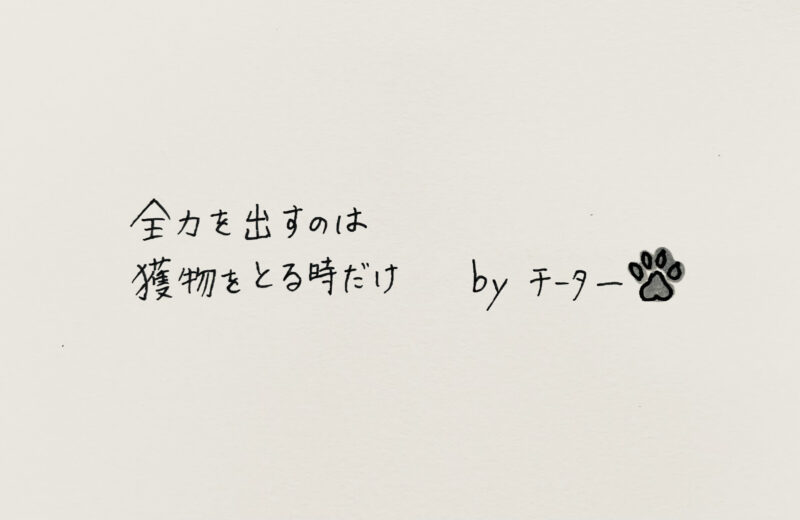 全力を出すのは
獲物をとる時だけ by チーター